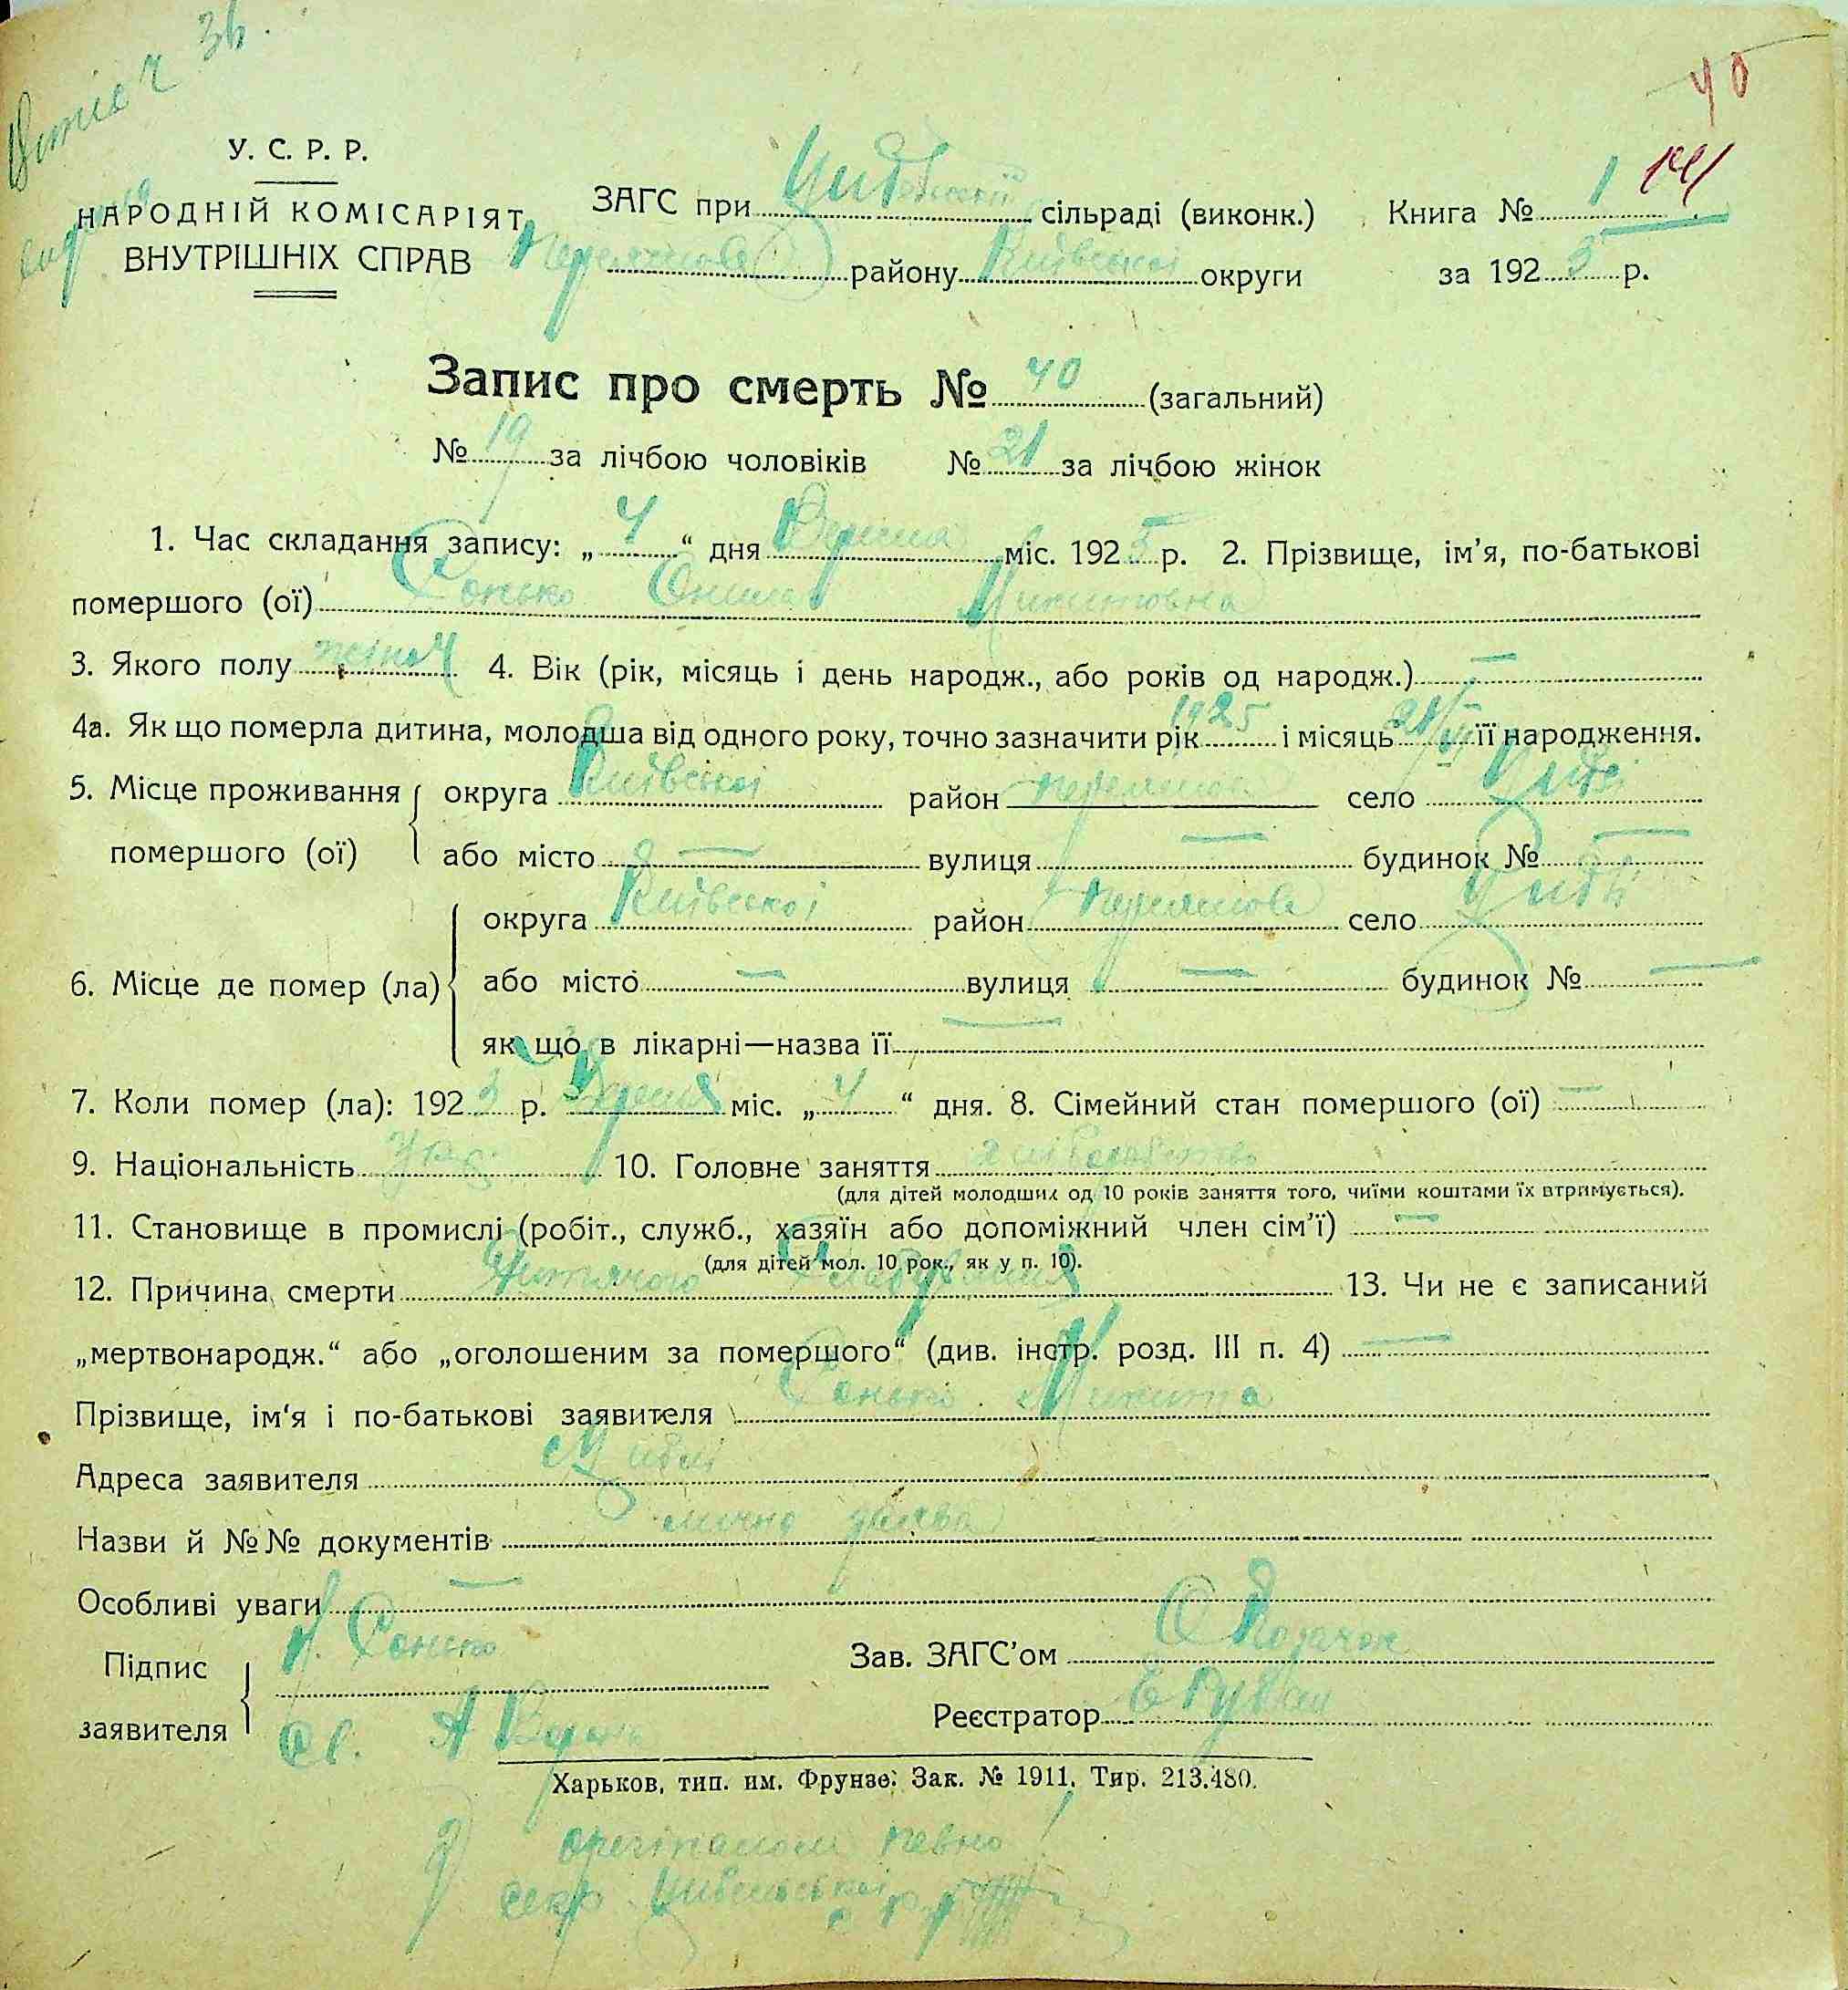 36.
40
У. С. Р. Р.
НАРОДНІЙ КОМІСАРІЯТ
ВНУТРІШНІХ СПРАВ
ЗАГС при сільраді (виконк.) Книга № 1 141
району Київської округи за 192 5 р.
Запис про смерть № 40 (загальний)
№ 19 за лічбою чоловіків № 21 за лічбою жінок
1. Час складання запису: „ 4 “ дня Вересня міс. 192 5 р. 2. Прізвище, ім’я, по-батькові
помершого (ої) Сонько Микитовна
3. Якого полу жіноч 4. Вік (рік, місяць і день народж., або років од народж.) —
4а. Як що померла дитина, молодша від одного року, точно зазначити рік 1925 і місяць її народження.
5. Місце проживання округа Київської район село
помершого (ої) або місто — вулиця — будинок № —
округа Київської район село
6. Місце де помер (ла) або місто — вулиця — будинок № —
як що в лікарні—назва її —
7. Коли помер (ла): 192 5 р. Вересня міс. „ 4 “ дня. 8. Сімейний стан помершого (ої) —
9. Національність Укр. 10. Головне заняття хліборобство
(для дітей молодших од 10 років заняття того, чиїми коштами їх втримується).
11. Становище в промислі (робіт., служб., хазяїн або допоміжний член сім’ї) —
(для дітей мол. 10 рок., як у п. 10).
12. Причина смерти 13. Чи не є записаний
„мертвонародж.“ або „оголошеним за помершого“ (див. інстр. розд. III п. 4) —
Прізвище, ім‘я і по-батькові заявителя Сонько Микита
Адреса заявителя
Назви й №№ документів лично заява
Особливі уваги —
Підпис Сонько Зав. ЗАГС’ом
заявителя Реєстратор
Харьков, тип. им. Фрунзе. Зак. № 1911. Тир. 213.480.
З оригіналом певно
секр.